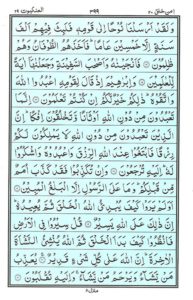 العنكبوت ٢٩ ٣٩٩ امن خلق ٢٠
وَلَقَدْ اَرْسَلْنَا نُوْحًا اِلٰى قَوْمِهٖ فَلَبِثَ فِيْهِمْ اَلْفَ
سَنَةٍ اِلَّا خَمْسِيْنَ عَامًا فَاَخَذَهُمُ الطُّوْفَانُ وَهُمْ
ظٰلِمُوْنَ فَاَنْجَيْنٰهُ وَاَصْحٰبَ السَّفِيْنَةِ وَجَعَلْنٰهَآ اٰيَةً
لِّلْعٰلَمِيْنَ وَاِبْرٰهِيْمَ اِذْ قَالَ لِقَوْمِهِ اعْبُدُوا اللّٰهَ
وَاتَّقُوْهُ ذٰلِكُمْ خَيْرٌ لَّكُمْ اِنْ كُنْتُمْ تَعْلَمُوْنَ اِنَّمَا
تَعْبُدُوْنَ مِنْ دُوْنِ اللّٰهِ اَوْثَانًا وَّتَخْلُقُوْنَ اِفْكًا اِنَّ
الَّذِيْنَ تَعْبُدُوْنَ مِنْ دُوْنِ اللّٰهِ لَا يَمْلِكُوْنَ لَكُمْ
رِزْقًا فَابْتَغُوْا عِنْدَ اللّٰهِ الرِّزْقَ وَاعْبُدُوْهُ وَاشْكُرُوْا
لَهٗ اِلَيْهِ تُرْجَعُوْنَ وَاِنْ تُكَذِّبُوْا فَقَدْ كَذَّبَ اُمَمٌ
مِّنْ قَبْلِكُمْ وَمَا عَلَى الرَّسُوْلِ اِلَّا الْبَلٰغُ الْمُبِيْنُ
اَوَلَمْ يَرَوْا كَيْفَ يُبْدِئُ اللّٰهُ الْخَلْقَ ثُمَّ يُعِيْدُهٗ
اِنَّ ذٰلِكَ عَلَى اللّٰهِ يَسِيْرٌ قُلْ سِيْرُوْا فِى الْاَرْضِ
فَانْظُرُوْا كَيْفَ بَدَاَ الْخَلْقَ ثُمَّ اللّٰهُ يُنْشِئُ النَّشْاَةَ
الْاٰخِرَةَ اِنَّ اللّٰهَ عَلٰى كُلِّ شَىْءٍ قَدِيْرٌ يُعَذِّبُ
مَنْ يَّشَآءُ وَيَرْحَمُ مَنْ يَّشَآءُ وَاِلَيْهِ تُقْلَبُوْنَ
منزل ٥